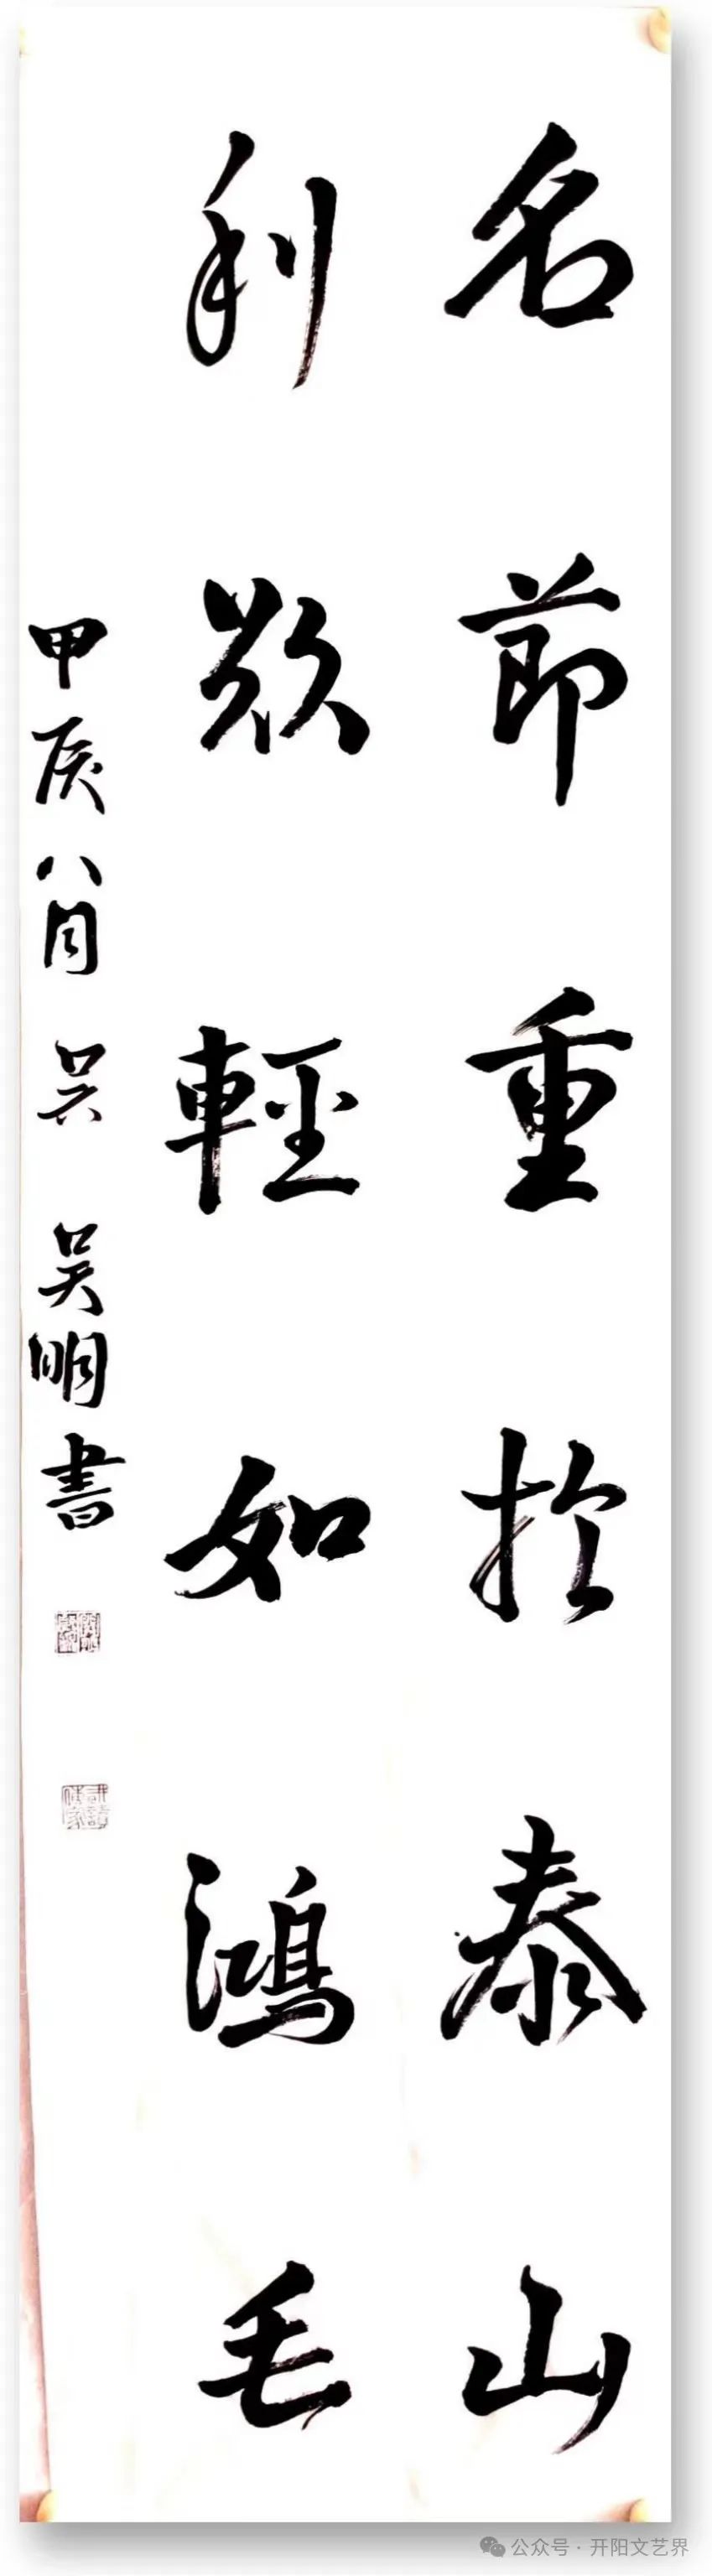 名節重於泰山
利欲輕如鴻毛
甲辰八月 吴 吴明書
公众号·开阳文艺界